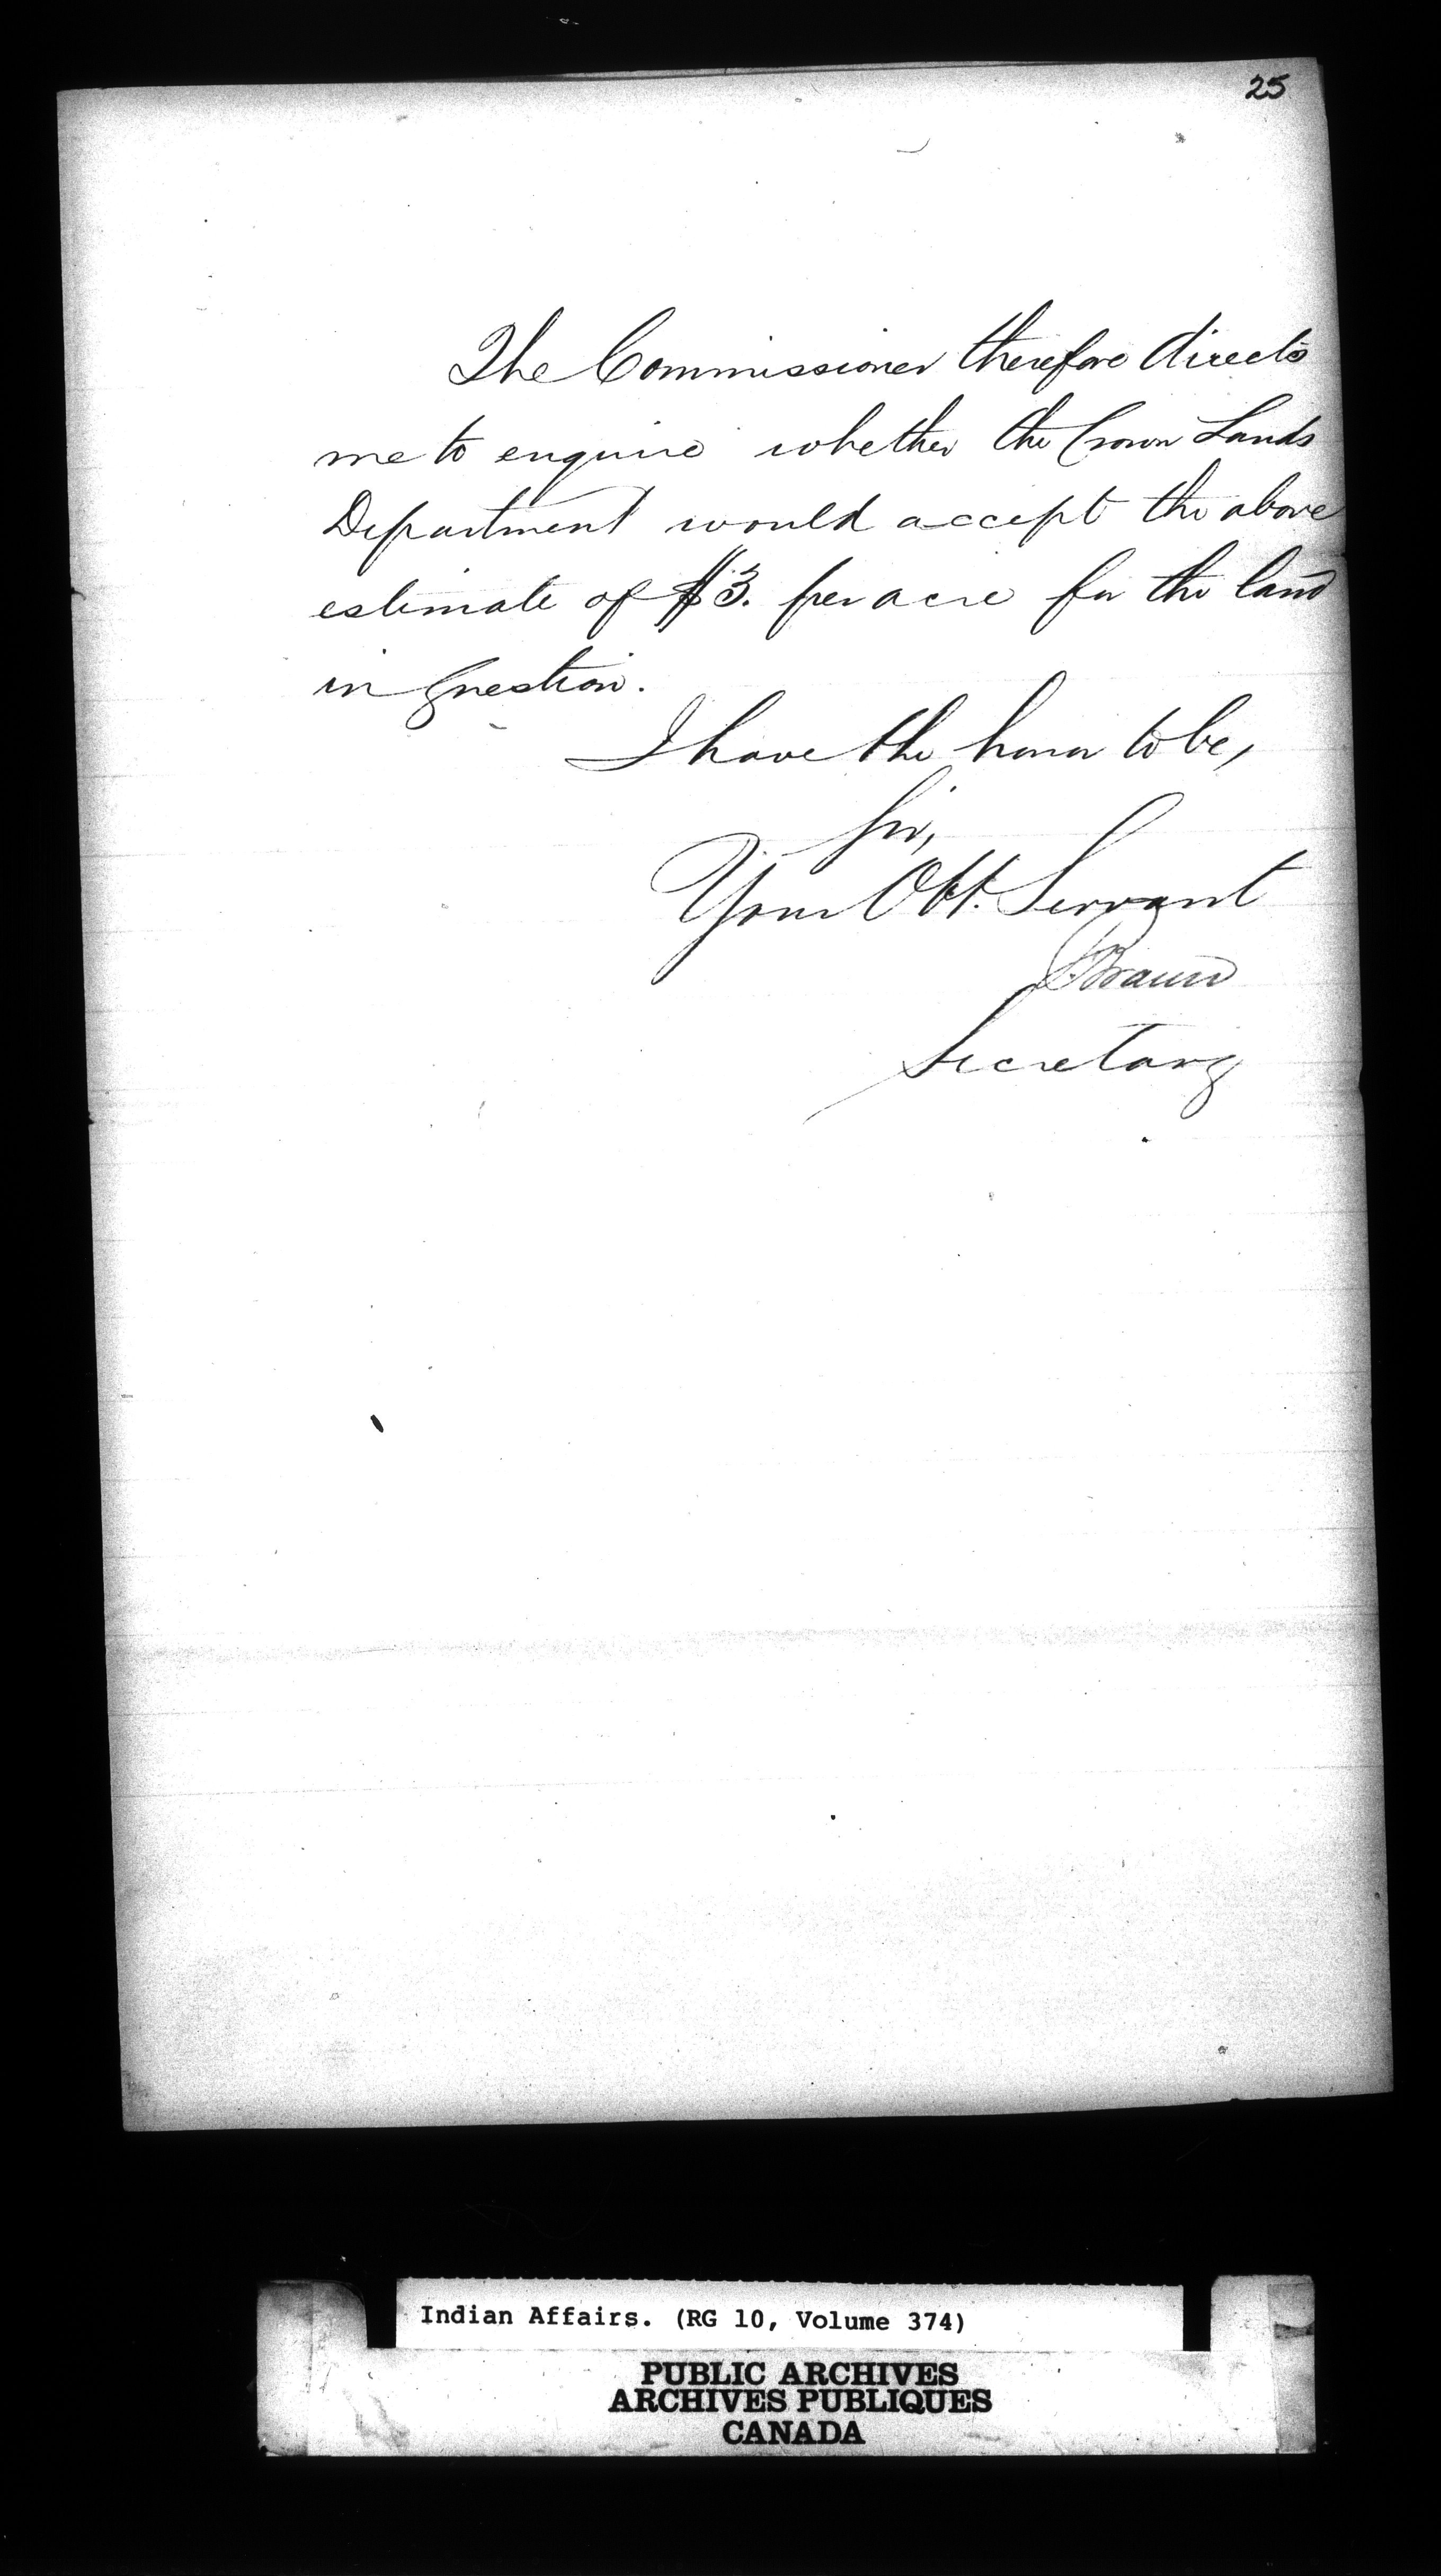 25
The Commissioner therefore directs
me to enquire whether the Crown Lands
Department would accept the above
estimate of $3. per acre for the land
in question.
I have the honor to be,
Sir,
Your Obt. Servant
F. Braun
Secretary
Indian Affairs. (RG 10, Volume 374)
PUBLIC ARCHIVES
ARCHIVES PUBLIQUES
CANADA